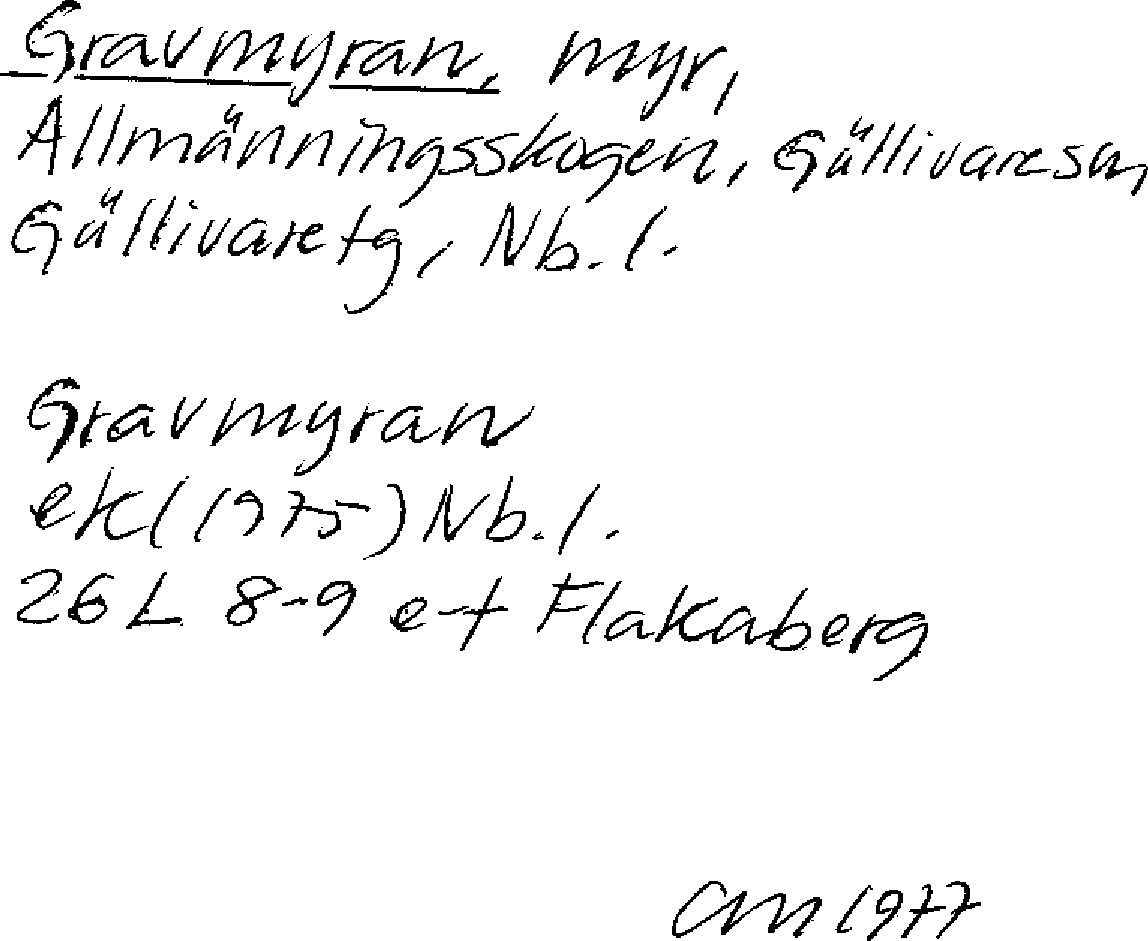 Gravmyran, myr,
Allmänningsskogen, Gällivare sn,
Gällivare tg, Nb. l.
Gravmyran
ek (1975) Nb. l.
26 L 8-9 e-f Flakaberg
CM 1977